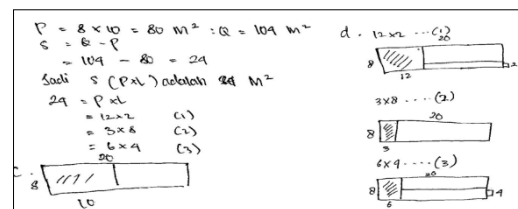 P = 8 x 10 = 80 M² : Q = 104 M²
S = Q - P
= 104 - 80 = 24
Jadi S (PxL) adalah 24 M²
24 = P x L
= 12x2 (1)
= 3x8 (2)
= 6x4 (3)
c.
20
8
10
d. 12x2 ...(1)
20
8
12
2
3x8 ....(2)
20
8
3
6x4 ....(3)
8
6
4